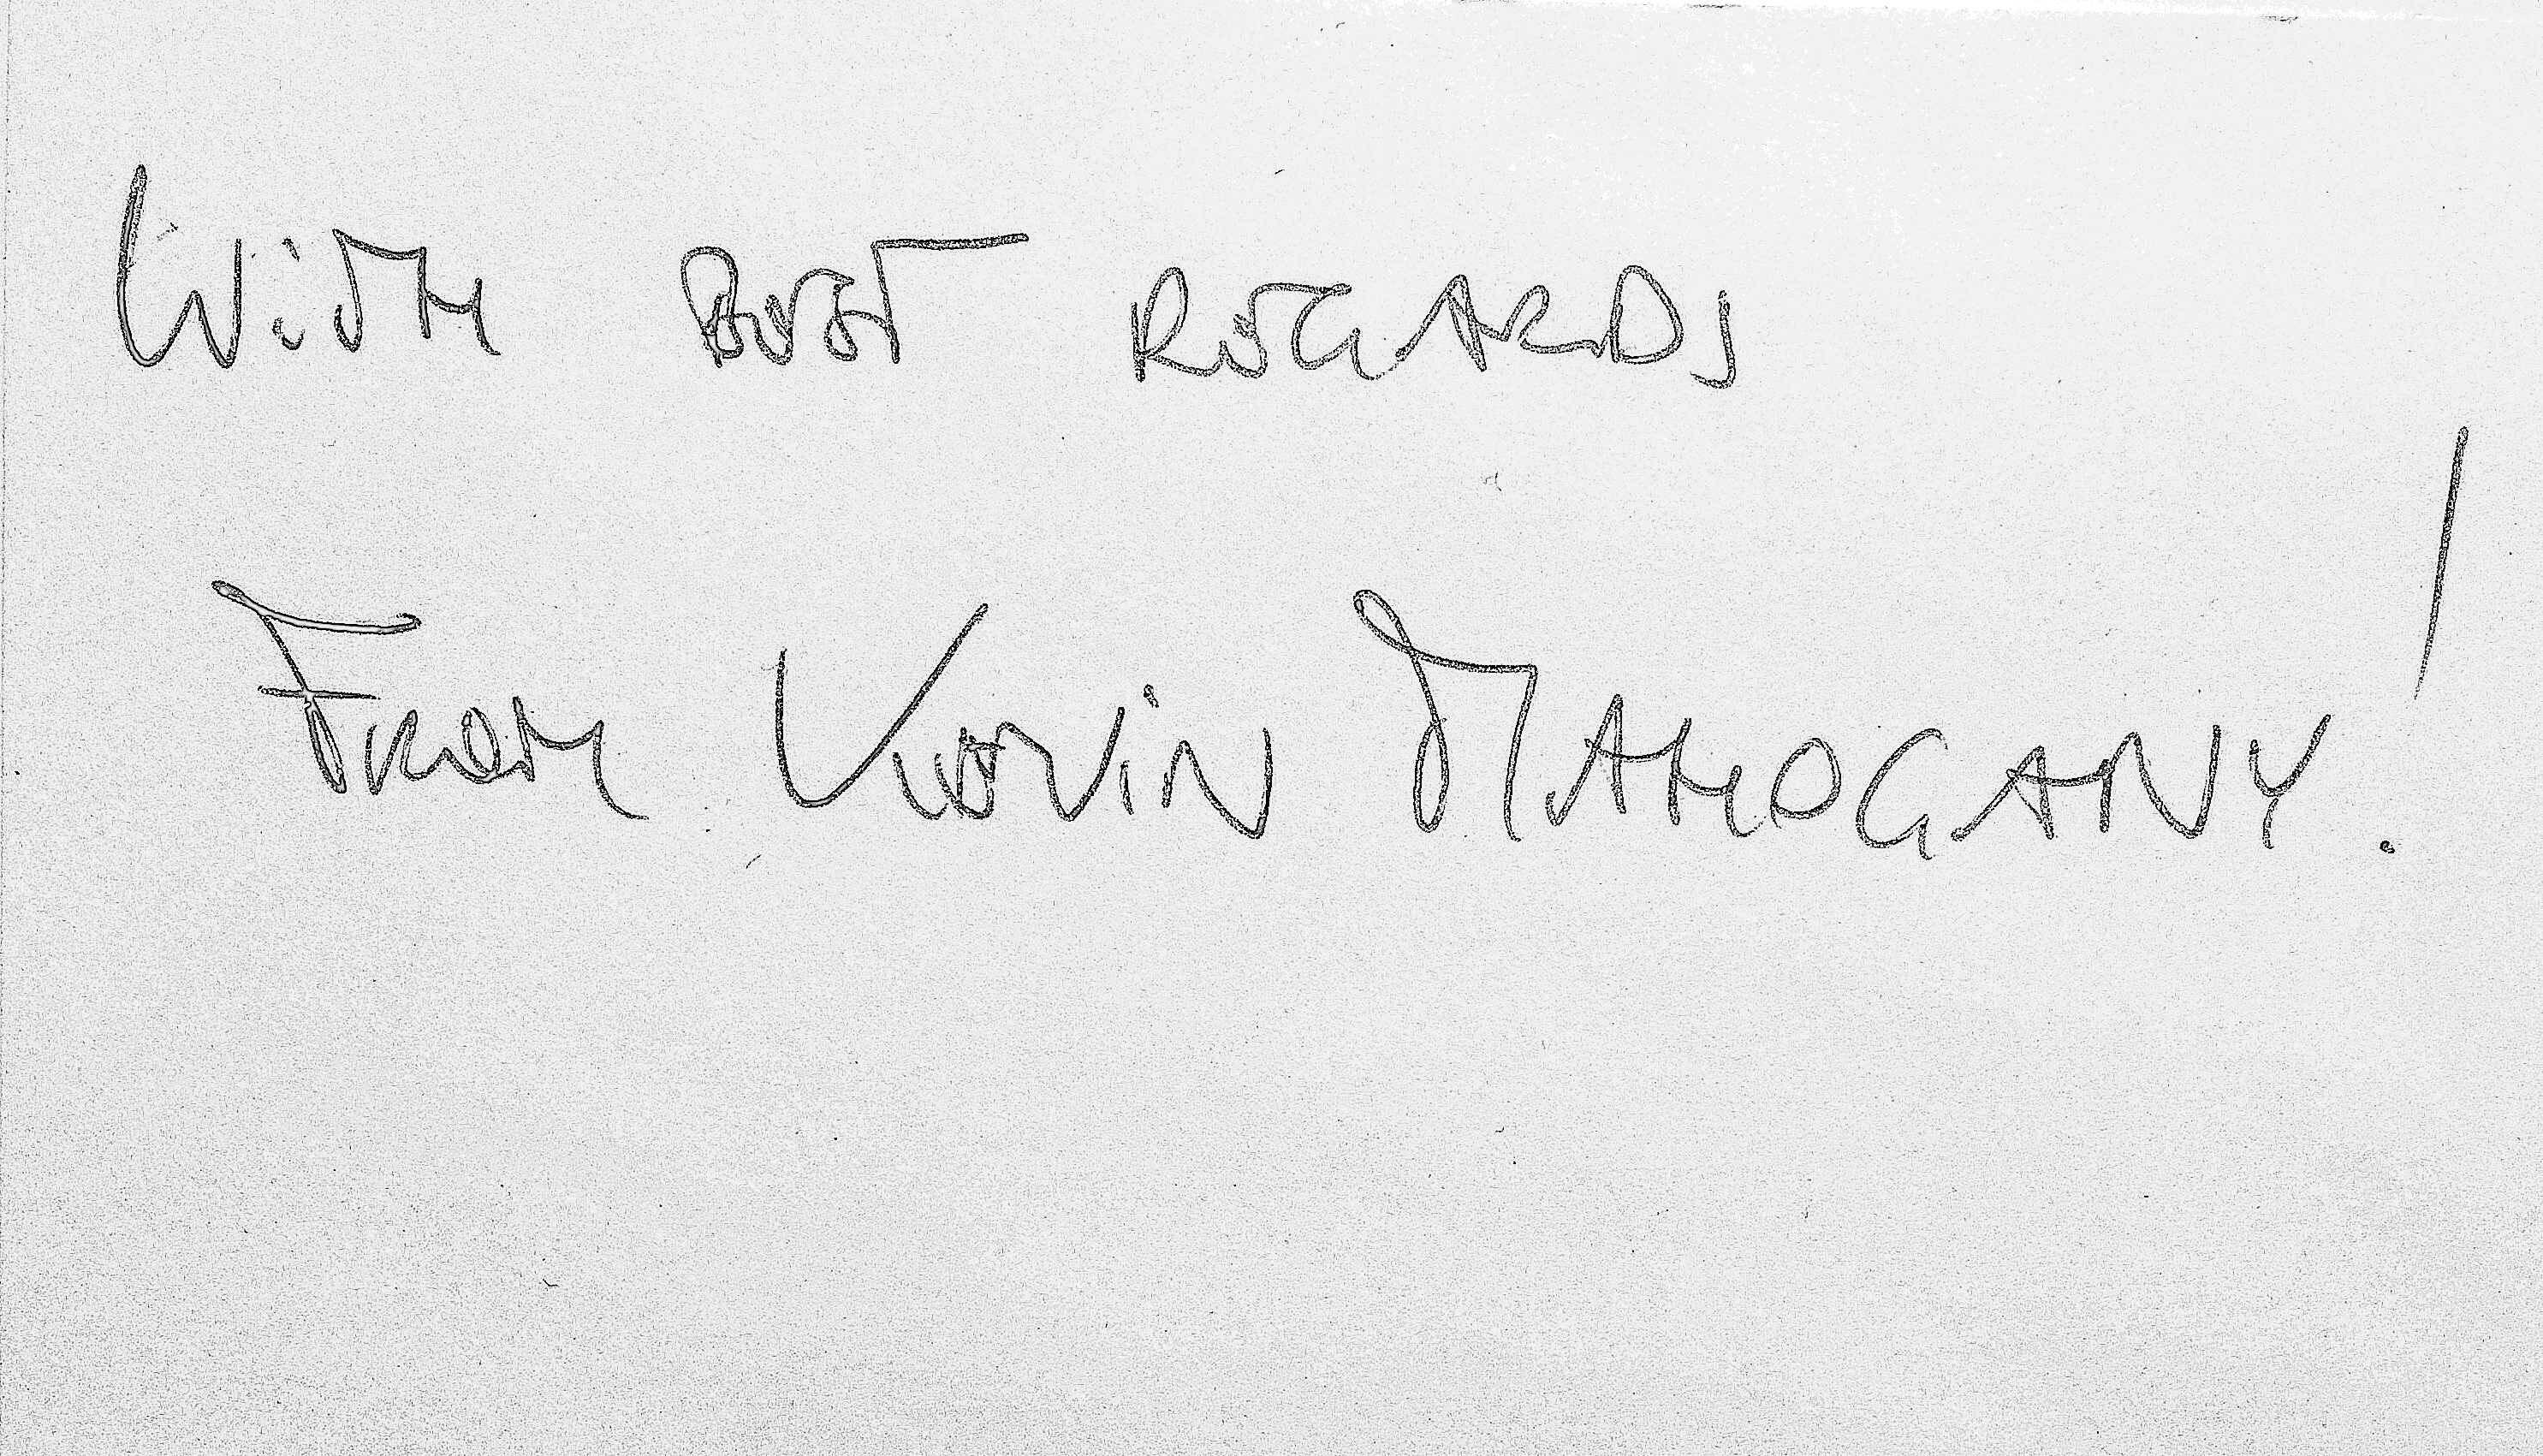 WiTH BEST REGARDS
FROM KEViN MAHOGANY!